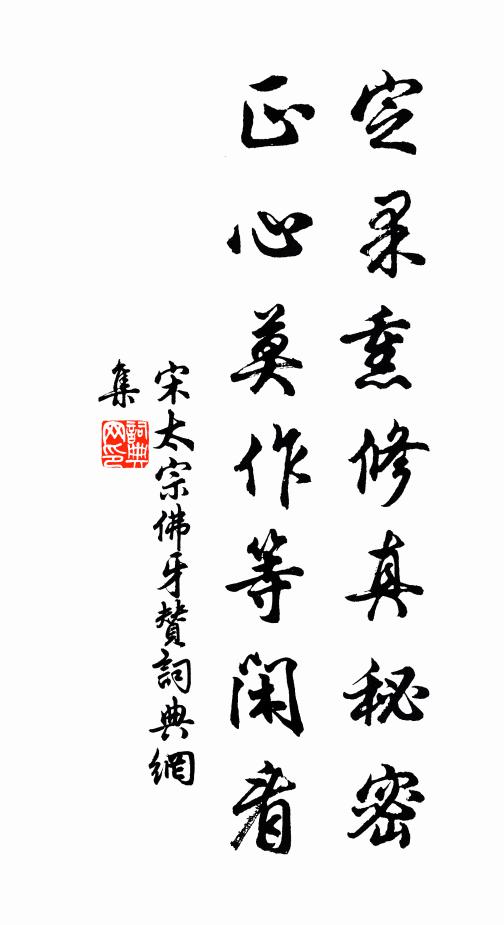 定果熏修真秘密
正心莫作等閑看
宋太宗佛牙贊詞典網
集
詞典網印